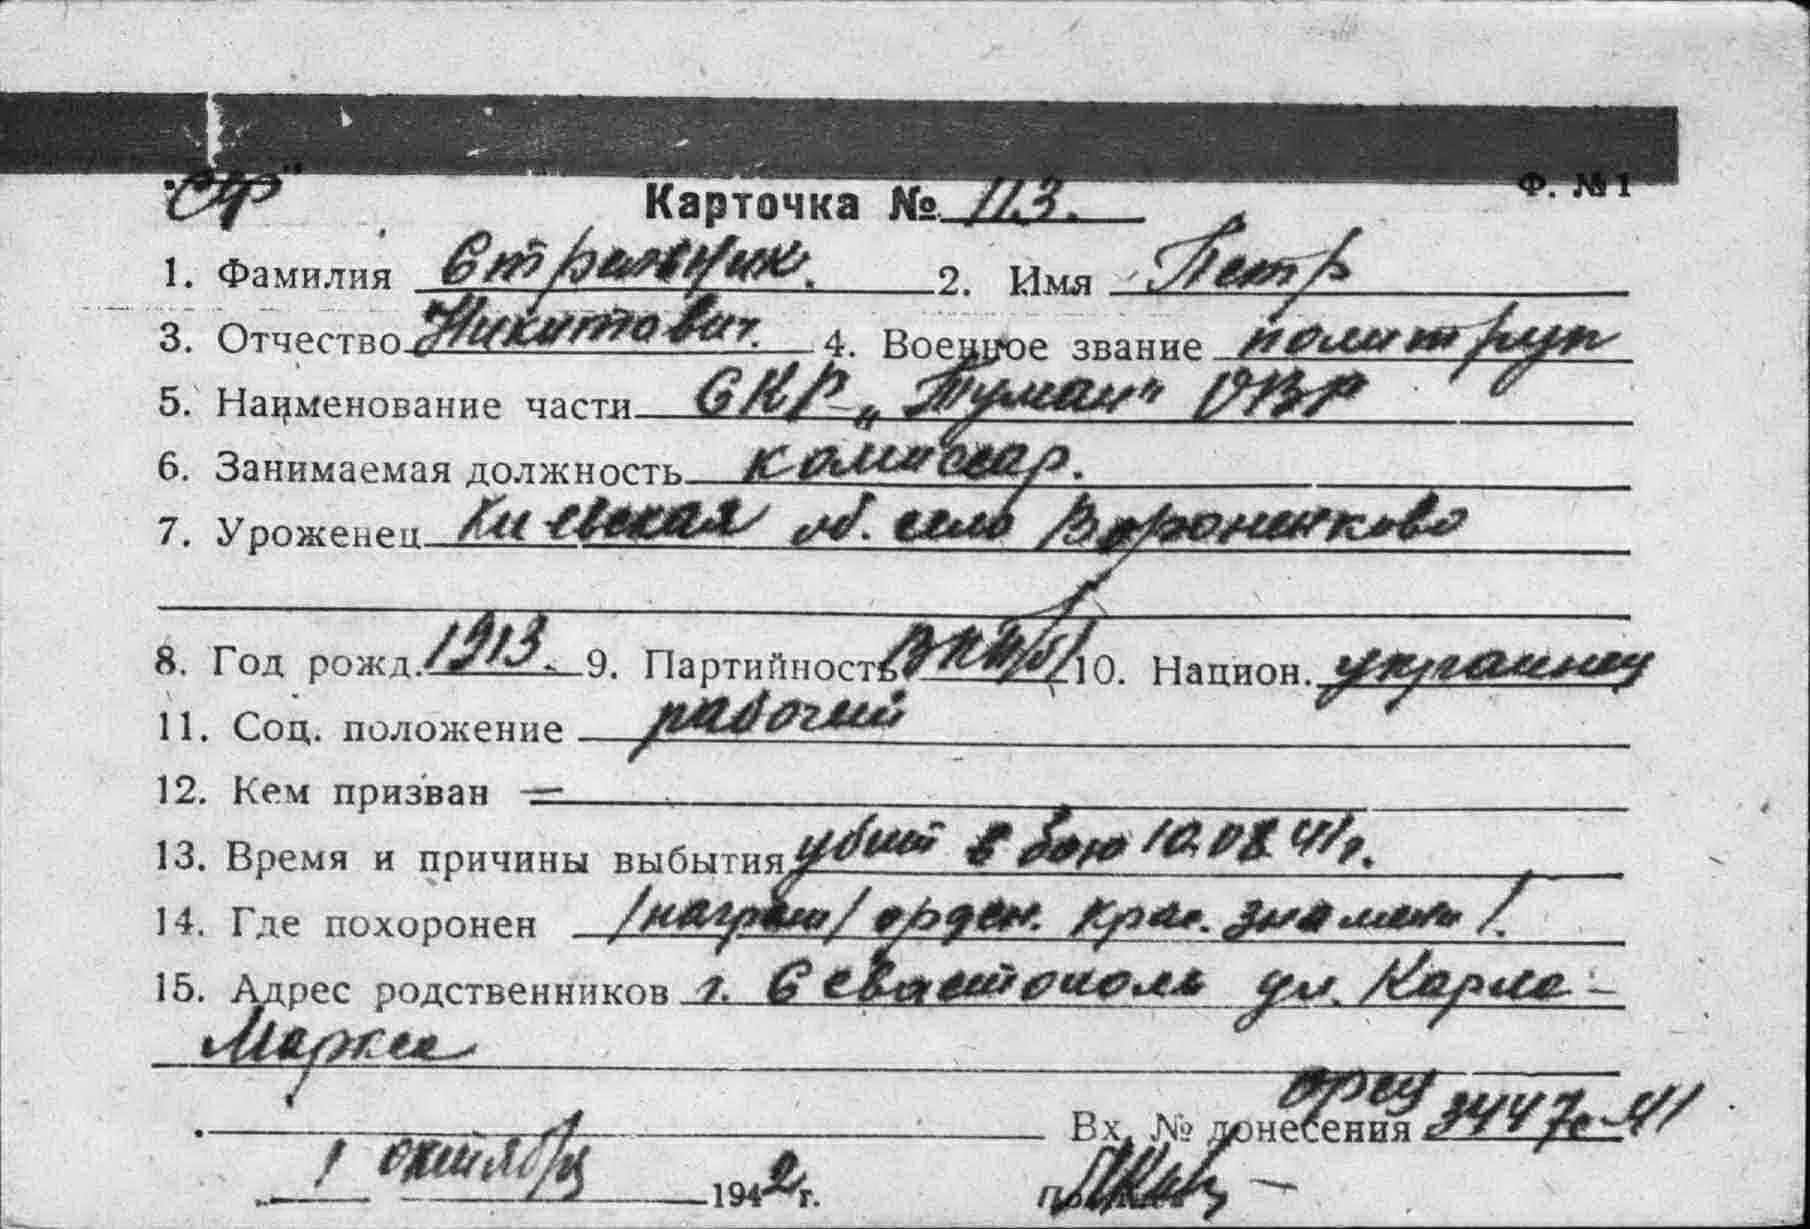 "СФ"
Ф. №1
Карточка № 113.
1. Фамилия Стрельник. 2. Имя Петр
3. Отчество Никитович. 4. Военное звание политрук
5. Наименование части СКР „Туман" ОВР
6. Занимаемая должность комиссар.
7. Уроженец Киевская об. село Вороненково
8. Год рожд. 1913. 9. Партийность ВКП/б/ 10. Национ. украинец
11. Соц. положение рабочий
12. Кем призван =
13. Время и причины выбытия убит в бою 10.08.41г.
14. Где похоронен /награж/ орден. крас. знамени/.
15. Адрес родственников г. Севастополь ул. Карла-
Маркса
Вх. № донесения 3447с-41
1 октября 1942 г.